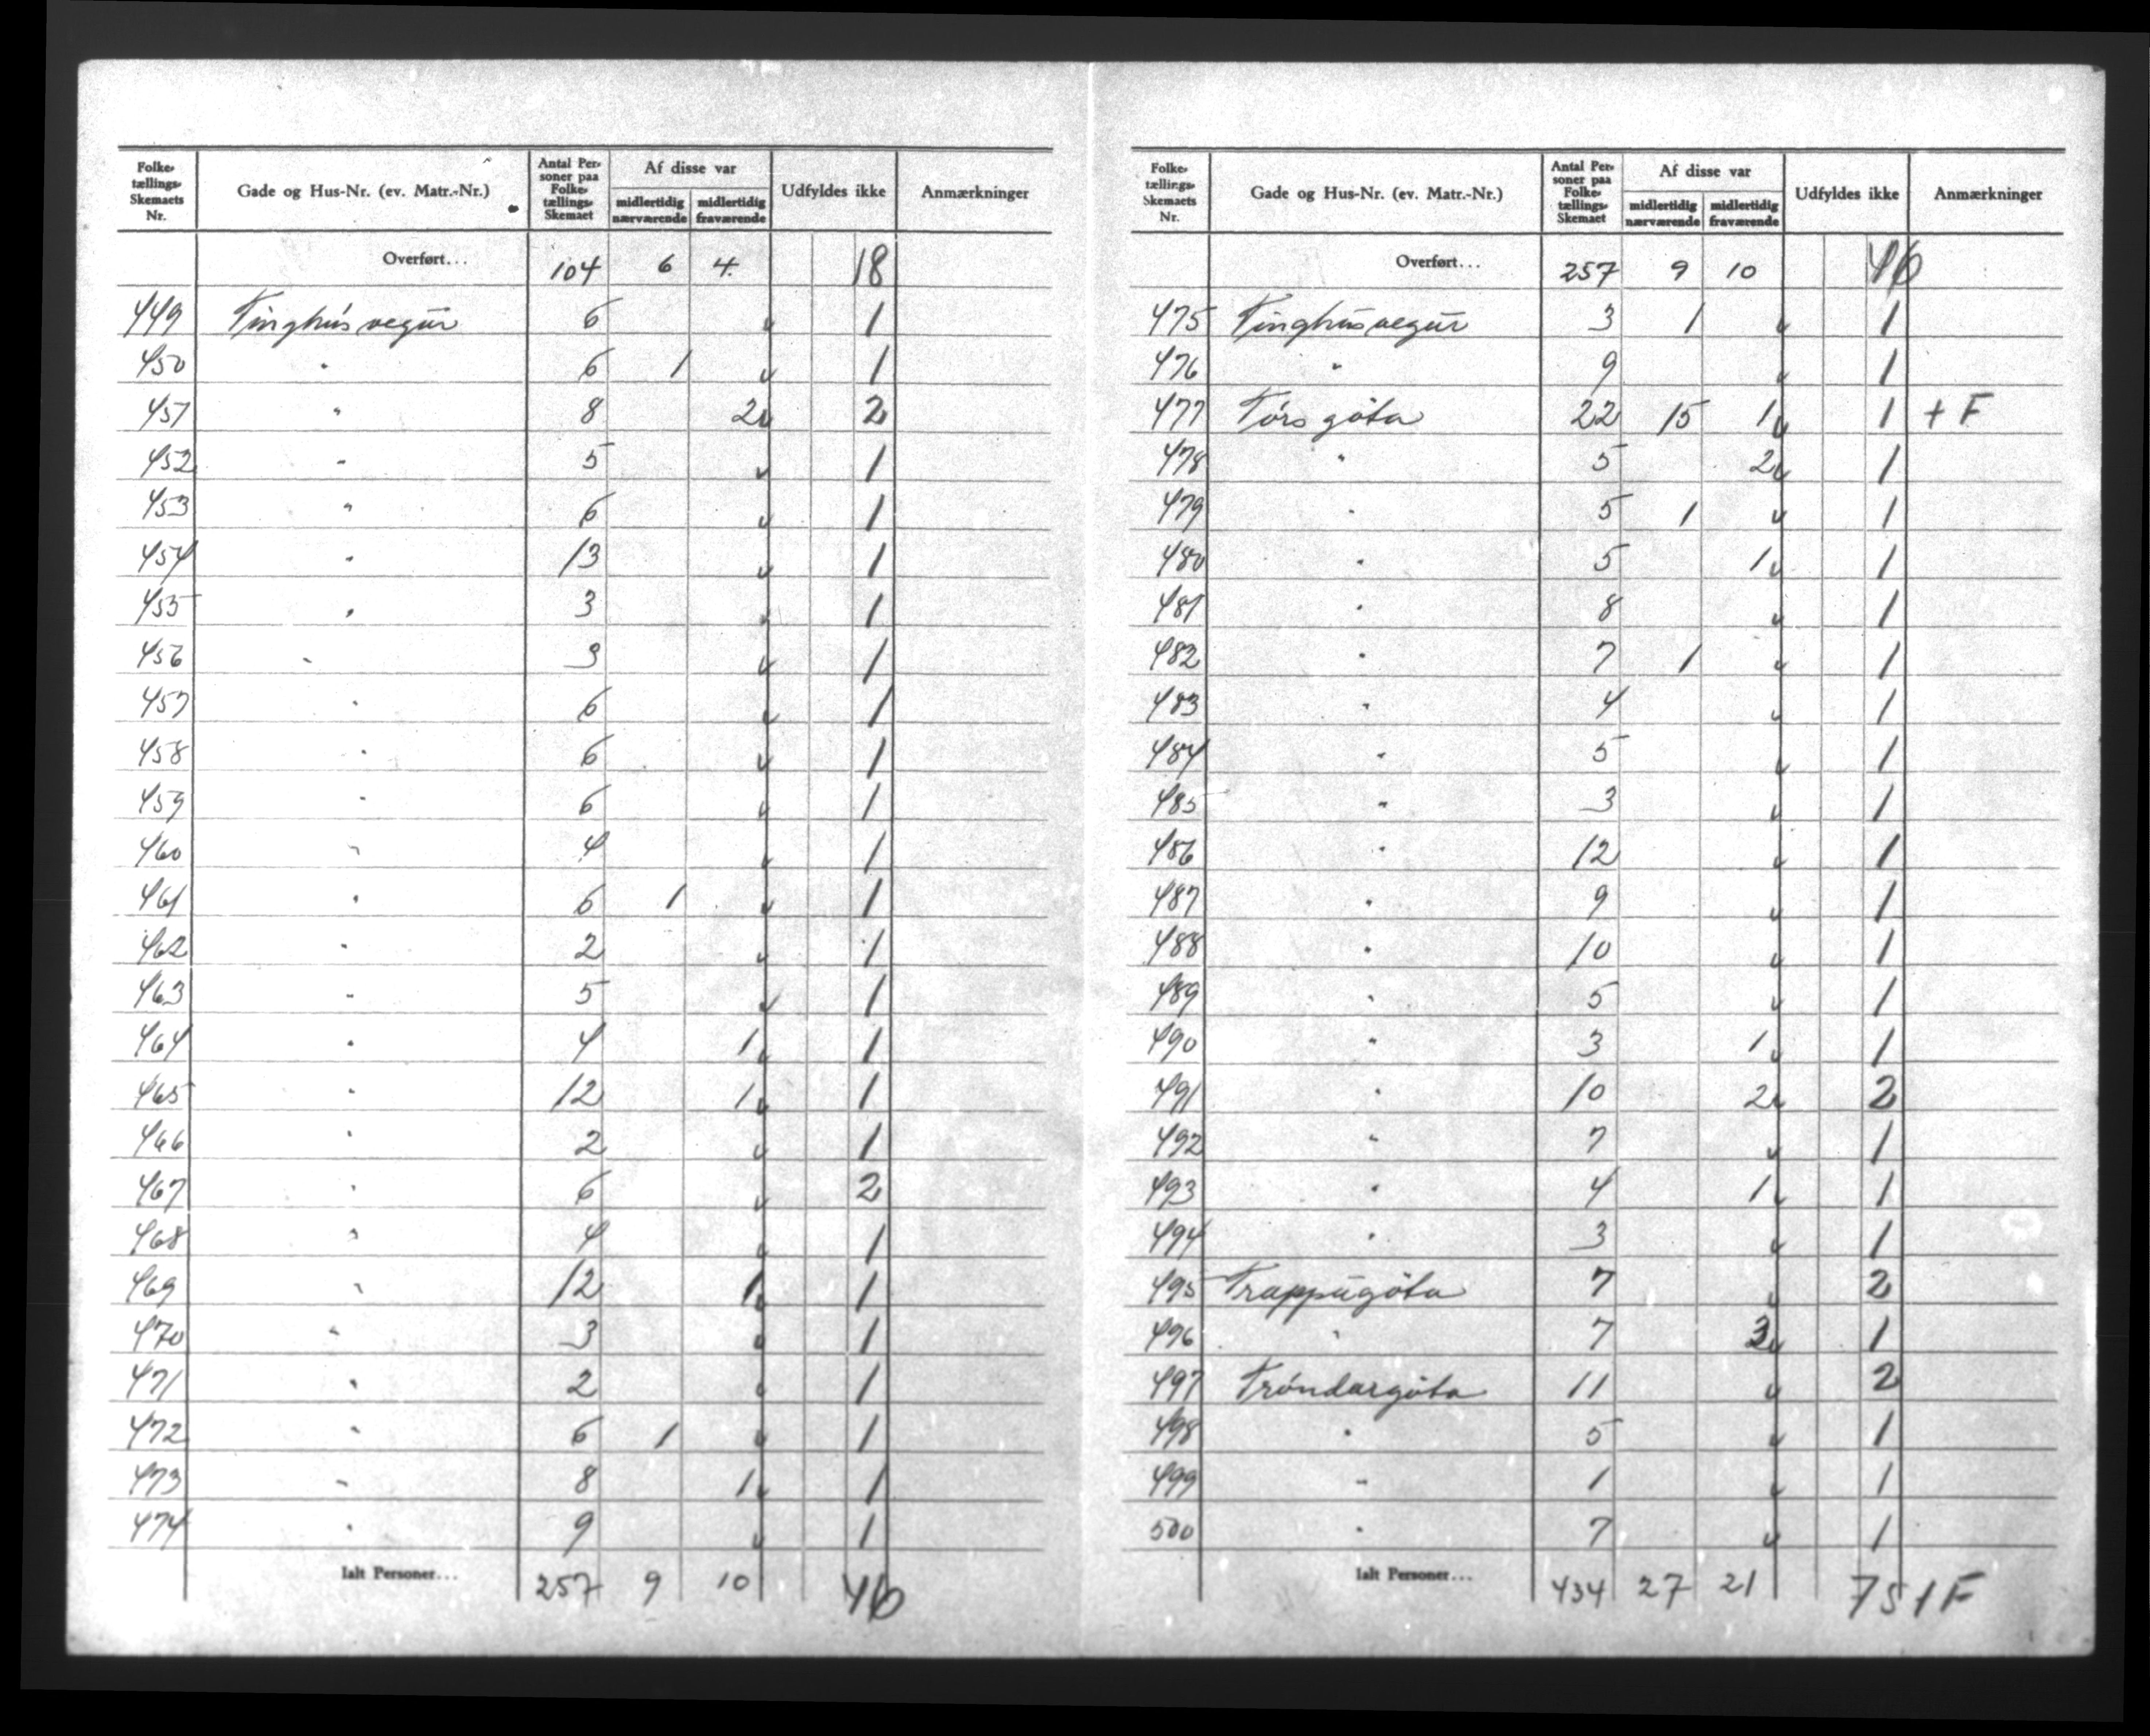 Folke-tællings-Skemaets Nr. Gade og Hus-Nr. (ev. Matr.-Nr.) Antal Personer paa Folke-tællings-Skemaet Af disse var midlertidig nærværende midlertidig fraværende Udfyldes ikke Anmærkninger
Overført... 104 6 4. 18
449 Tinghúsvegur 6 v 1
450 " 6 1 v 1
451 " 8 2 v 2
452 " 5 v 1
453 " 6 v 1
454 " 13 v 1
455 " 3 v 1
456 " 3 v 1
457 " 6 v 1
458 " 6 v 1
459 " 6 v 1
460 " 4 v 1
461 " 6 1 v 1
462 " 2 v 1
463 " 5 v 1
464 " 4 1 v 1
465 " 12 1 v 1
466 " 2 v 1
467 " 6 v 2
468 " 4 v 1
469 " 12 1 v 1
470 " 3 v 1
471 " 2 v 1
472 " 6 1 v 1
473 " 8 1 v 1
474 " 9 v 1
Ialt Personer... 257 9 10 46
Folke-tællings-Skemaets Nr. Gade og Hus-Nr. (ev. Matr.-Nr.) Antal Personer paa Folke-tællings-Skemaet Af disse var midlertidig nærværende midlertidig fraværende Udfyldes ikke Anmærkninger
Overført... 257 9 10 46
475 Tinghúsvegur 3 1 v 1
476 " 9 v 1
477 Tórsgøta 22 15 1 v 1 + F
478 " 5 2 v 1
479 " 5 1 v 1
480 " 5 1 v 1
481 " 8 v 1
482 " 7 1 v 1
483 " 4 v 1
484 " 5 v 1
485 " 3 v 1
486 " 12 v 1
487 " 9 v 1
488 " 10 v 1
489 " 5 v 1
490 " 3 1 v 1
491 " 10 2 v 2
492 " 7 v 1
493 " 4 1 v 1
494 " 3 v 1
495 Trappugøta 7 v 2
496 " 7 3 v 1
497 Tróndargøta 11 v 2
498 " 5 v 1
499 " 1 v 1
500 " 7 v 1
Ialt Personer... 434 27 21 75 1 F